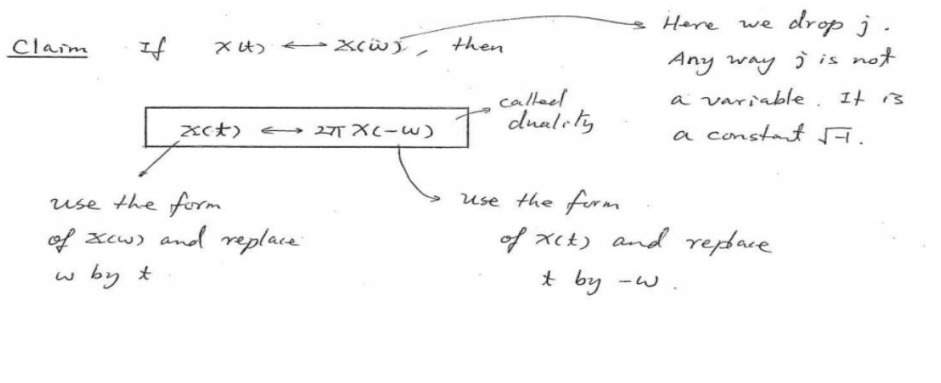 Claim If x(t) ⟷ X(ω), then
Here we drop j.
Any way j is not
a variable. It is
a constant √-1.
X(t) ⟷ 2π x(-ω)
called
duality
use the form
of X(ω) and replace
ω by t
use the form
of x(t) and replace
t by -ω.